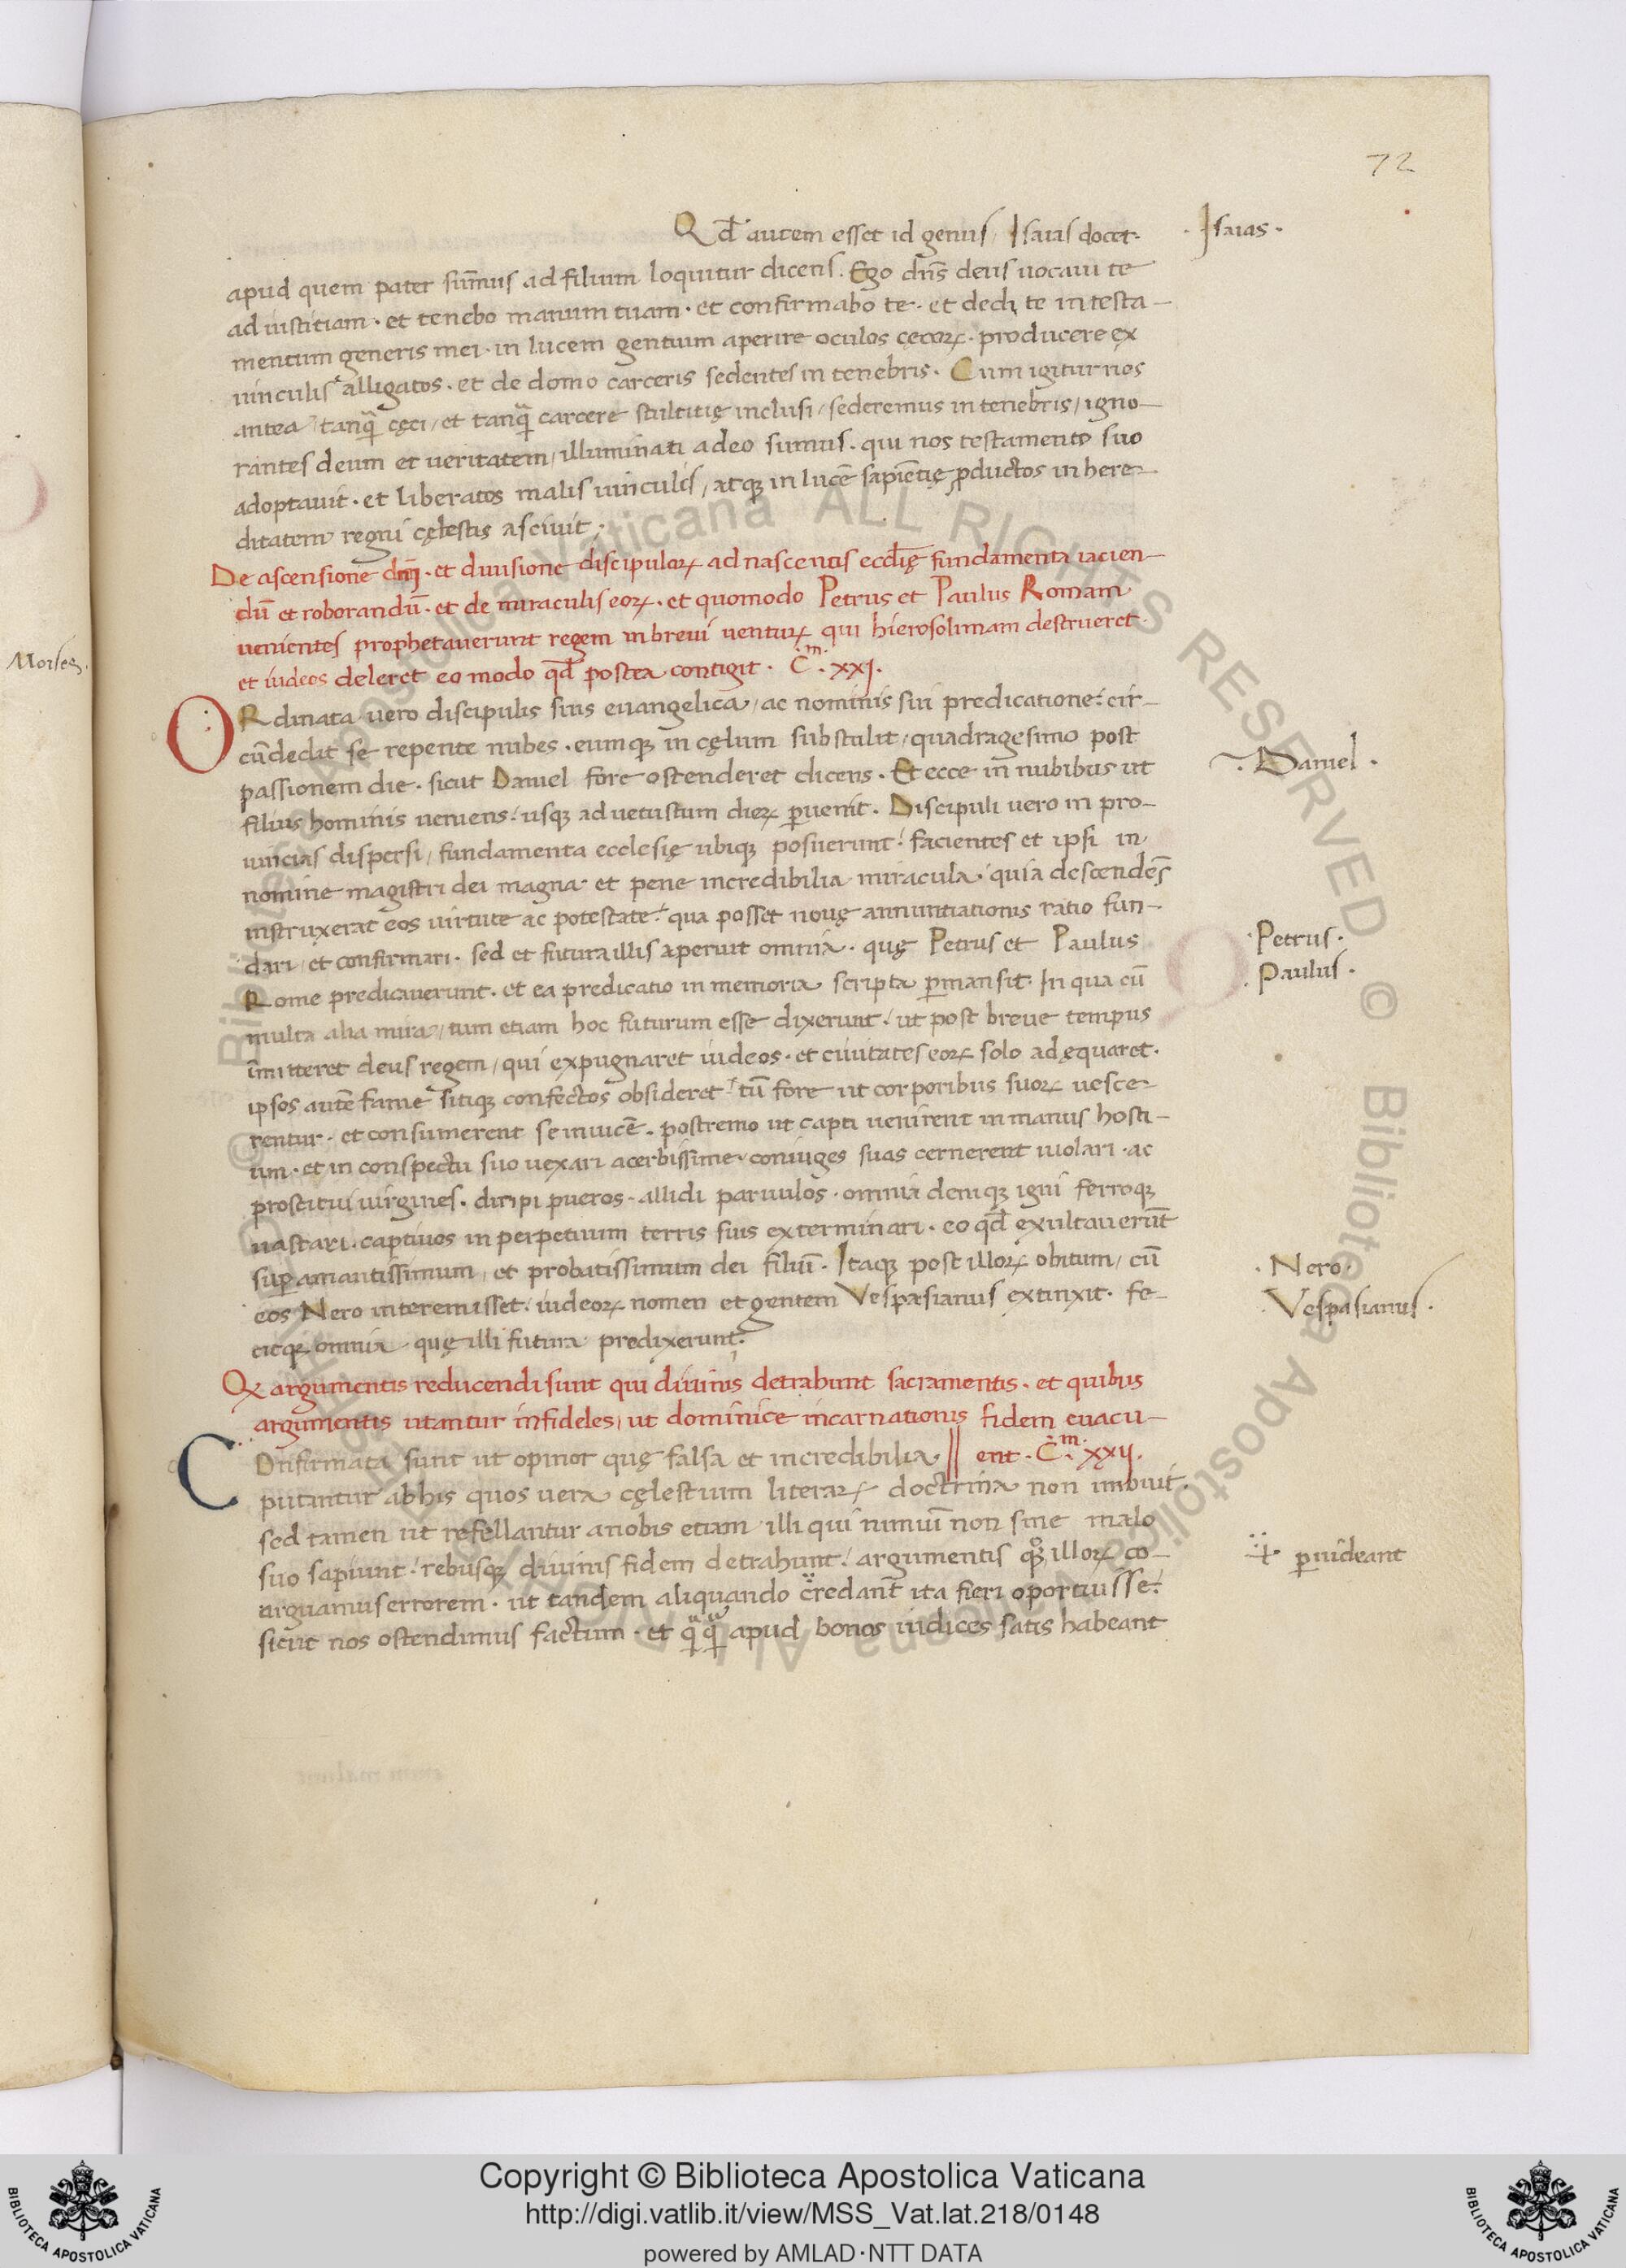 72
Qd̄ autem esset id genus, Isaias docet.
· Isaias ·
apud quem pater sūmus ad filium loquitur dicens. Ego dn̄s deus uocaui te
ad iustitiam. et tenebo manum tuam. et confirmabo te. et dedi te in testa-
mentum generis mei. in lucem gentium aperire oculos cęcoꝝ. producere ex
uinculis alligatos. et de domo carceris sedentes in tenebris. Cum igitur nos
antea tanꝗ̄ cęci, et tanꝗ̄ carcere stultitię inclusi, sederemus in tenebris, igno-
rantes deum et ueritatem, illuminati a deo sumus. qui nos testamento suo
adoptauit. et liberatos malis uinculis, atqꝫ in lucē sapiētię ꝓductos in here-
ditatem regni cęlestis asciuit;
De ascensione dn̄i. et diuisione discipuloꝝ ad nascentis eccl̄ię fundamenta iacien-
dū et roborandū. et de miraculis eoꝝ. et quomodo Petrus et Paulus Romam
uenientes prophetauerunt regem in breui uentuꝝ qui hierosolimam destrueret.
et iudeos deleret eo modo qd̄ postea contigit. C.m XXI.
Moises.
ORdinata uero discipulis suis euangelica, ac nominis sui predicatione: cir-
cūdedit se repente nubes. eumqꝫ in cęlum substulit, quadragesimo post
passionem die. sicut Daniel fore ostenderet dicens. Et ecce in nubibus ut
· Daniel ·
filius hominis ueniens: usqꝫ ad uetustum dieꝝ ꝑuenit. Discipuli uero in pro-
uincias dispersi, fundamenta ecclesię ubiqꝫ posuerunt: facientes et ipsi in
nomine magistri dei magna et pene incredibilia miracula. quia descendēs
instruxerat eos uirtute ac potestate: qua posset nouę annuntiationis ratio fun-
dari, et confirmari. sed et futura illis aperuit omnia. quę Petrus et Paulus
· Petrus ·
Rome predicauerunt. et ea predicatio in memoria scripta ꝑmansit. In qua cū
· Paulus ·
multa alia mira, tum etiam hoc futurum esse dixerunt. ut post breue tempus
īmitteret deus regem, qui expugnaret iudeos. et ciuitates eoꝝ solo adęquaret.
ipsos autē fame sitiqꝫ confectos obsideret. tū fore ut corporibus suoꝝ uesce-
rentur. et consumerent se inuicē. postremo ut capti uenirent in manus hosti-
um. et in conspectu suo uexari acerbissime coniuges suas cernerent uiolari. ac
prostitui uirgines. diripi pueros. allidi paruulos. omnia deniqꝫ igni ferroqꝫ
uastari. captiuos in perpetuum terris suis exterminari. eo qd̄ exultauerūt
suꝑ amantissimum, et probatissimum dei filiū. Itaqꝫ post illoꝝ obitum, cū
· Nero ·
eos Nero interemisset. iudeoꝝ nomen et gentem Vespasianus extinxit. fe-
· Vespasianus ·
citqꝫ omnia quę illi futura predixerunt.
Ex argumentis reducendi sunt qui diuinis detrahunt sacramentis. et quibus
argumentis utantur infideles, ut dominice incarnationis fidem euacu-
COnfirmata sunt ut opinor quę falsa et incredibilia || ent. C.m XXII.
putantur ab his quos uera cęlestium literaꝝ doctrina non imbuit.
sed tamen ut refellantur a nobis etiam illi qui nimiū non sine malo
suo sapiunt. rebusqꝫ diuinis fidem detrahunt. argumentis qꝫ illoꝝ co-
ꝑuideant
arguamus errorem. ut tandem aliquando credant̄ ita fieri oportuisse:
sicut nos ostendimus factum. et ꝗ̄ꝗ̄ apud bonos iudices satis habeant
Copyright © Biblioteca Apostolica Vaticana
http://digi.vatlib.it/view/MSS_Vat.lat.218/0148
powered by AMLAD·NTT DATA
BIBLIOTECA APOSTOLICA VATICANA
BIBLIOTECA APOSTOLICA VATICANA
© Biblioteca Apostolica Vaticana ALL RIGHTS RESERVED © Biblioteca Apostolica Vaticana ALL RIGHTS RESERVED